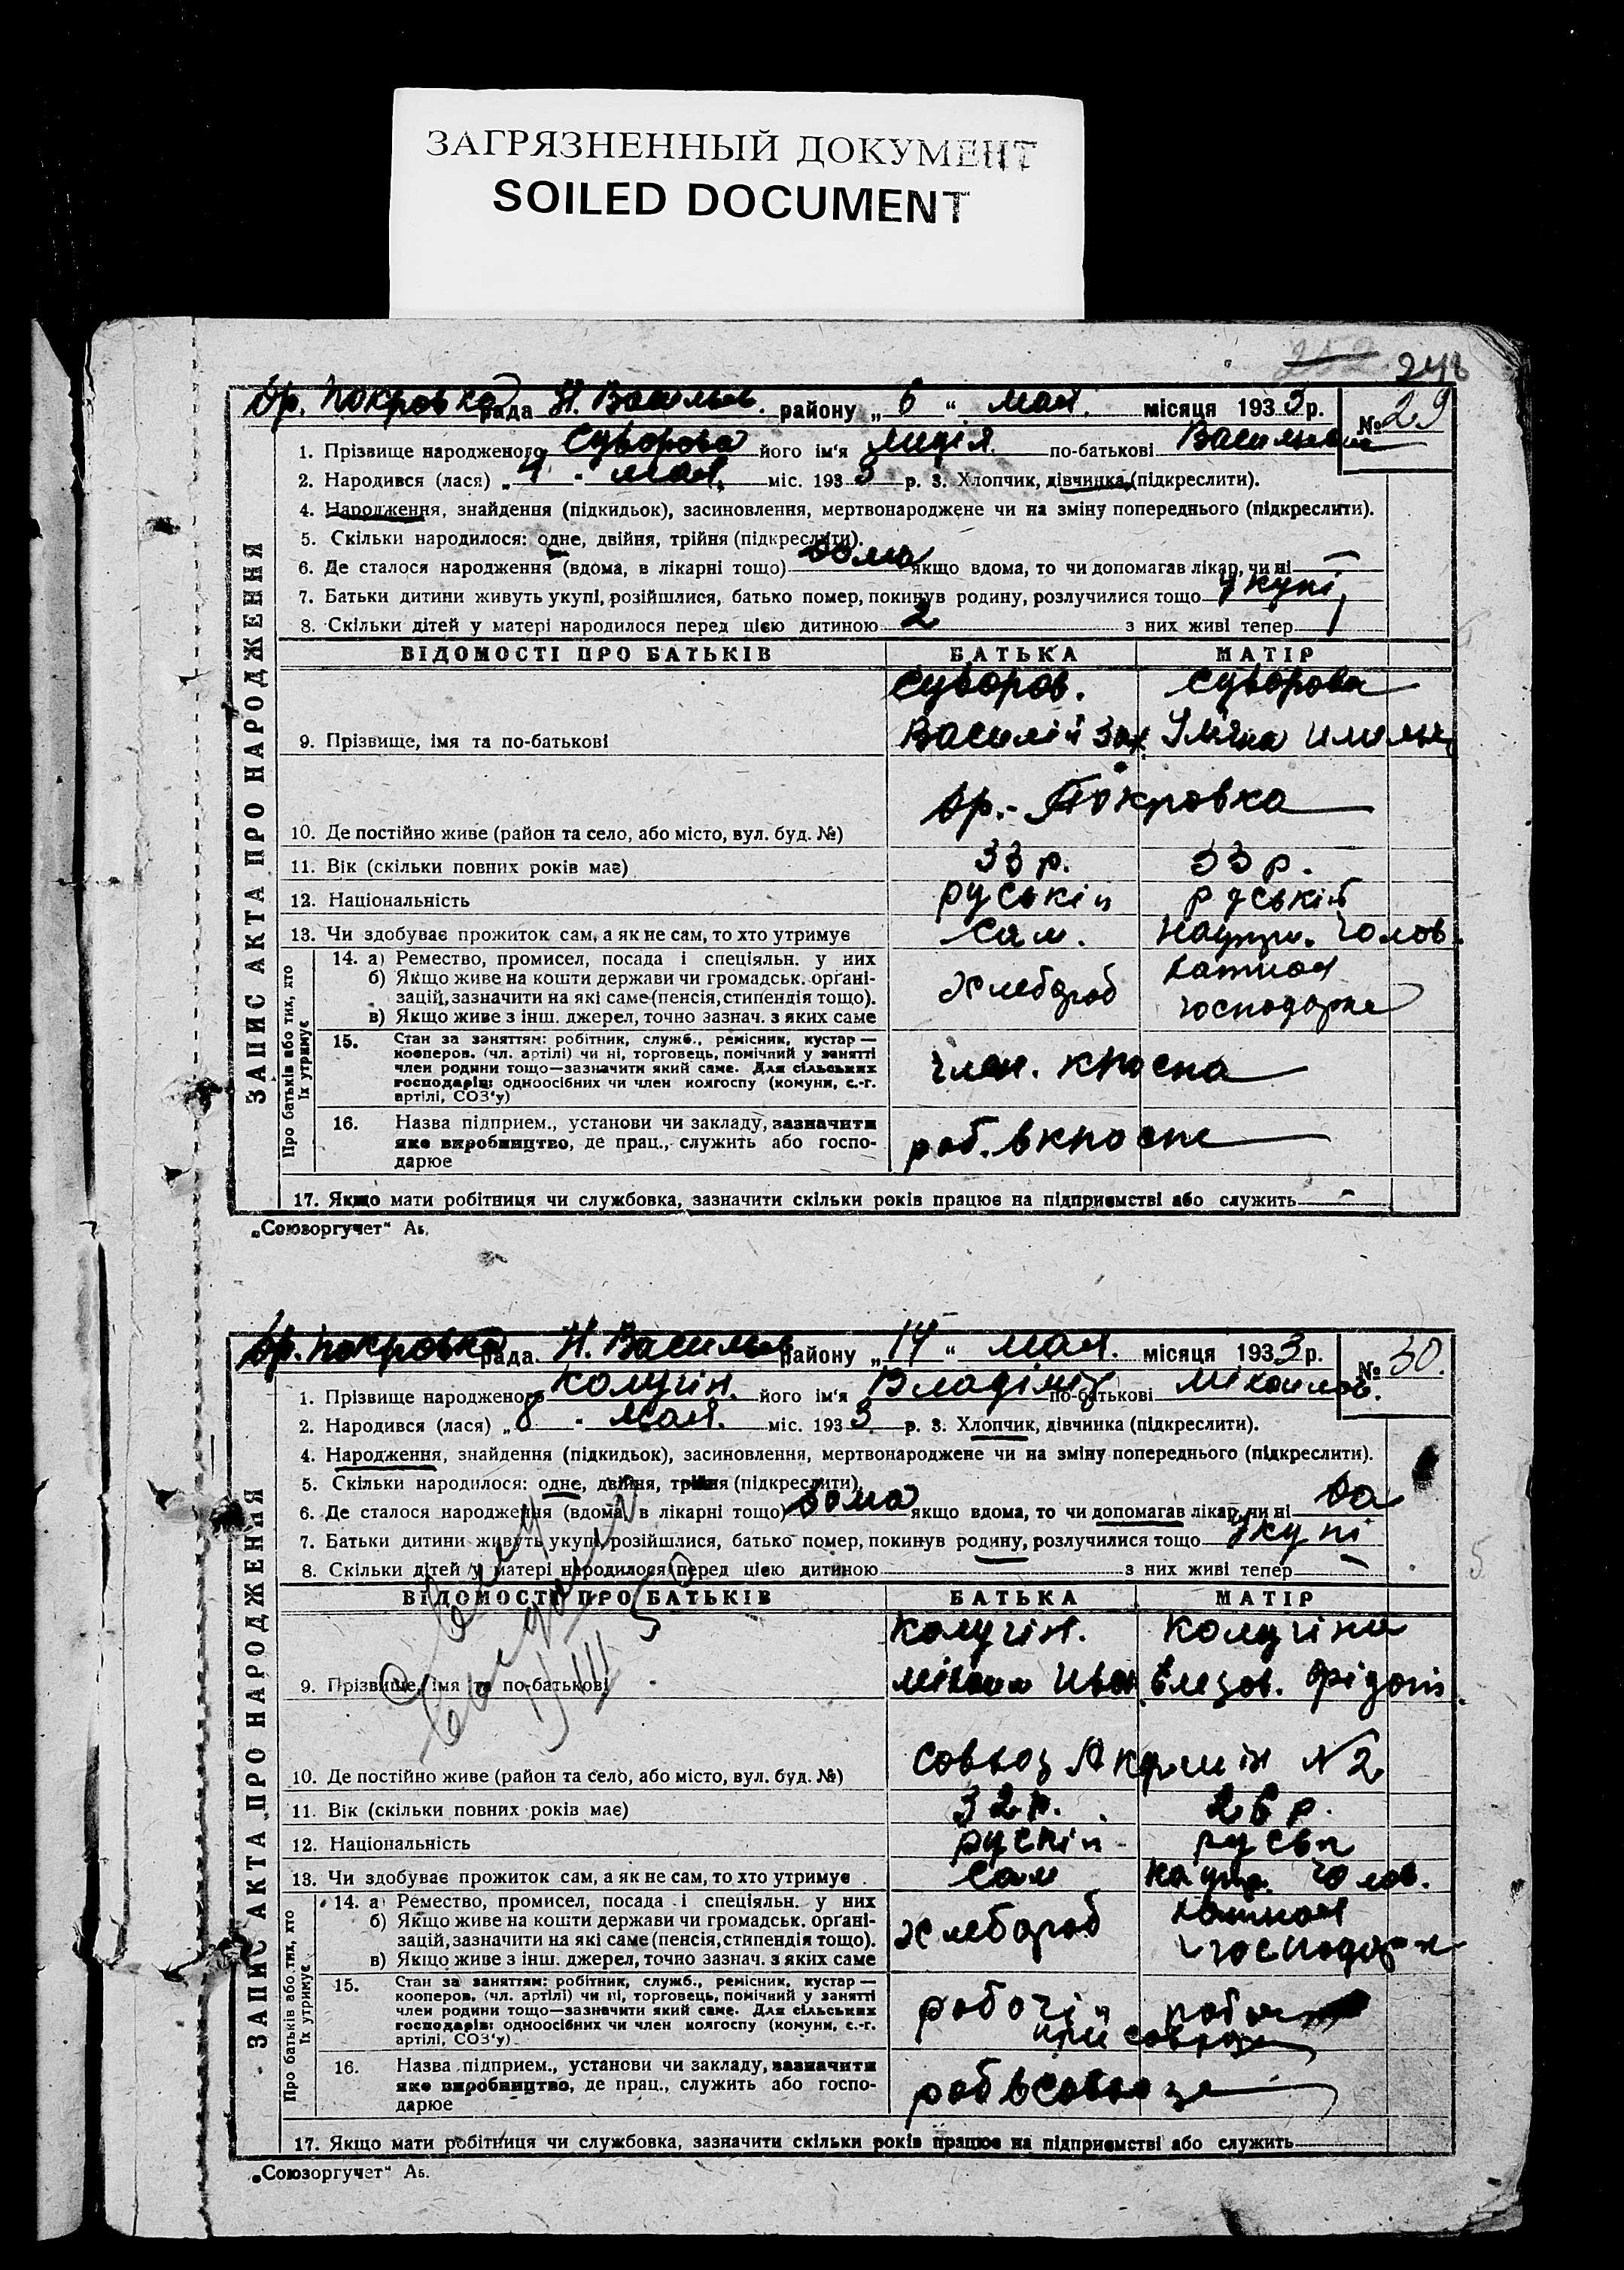 ЗАГРЯЗНЕННЫЙ ДОКУМЕНТ
SOILED DOCUMENT
252 248
Ор. Покровка рада Н. Васильев. району „ 6 “ мая. місяця 1933 р. № 29
ЗАПИС АКТА ПРО НАРОДЖЕННЯ
1. Прізвище народженого Суворова його ім'я Лидія. по-батькові
2. Народився (лася) „ мая. міс. 1933 р. 3. Хлопчик, дівчинка (підкреслити).
4. Народження, знайдення (підкидьок), засиновлення, мертвонароджене чи на зміну попереднього (підкреслити).
5. Скільки народилося: одне, двійня, трійня (підкреслити).
6. Де сталося народження (вдома, в лікарні тощо) дома якщо вдома, то чи допомагав лікар, чи ні —
7. Батьки дитини живуть укупі, розійшлися, батько помер, покинув родину, розлучилися тощо укупі
8. Скільки дітей у матері народилося перед цією дитиною 2 з них живі тепер 1
ВІДОМОСТІ ПРО БАТЬКІВ БАТЬКА МАТІР
Суворов. Суворова
9. Прізвище, імя та по-батькові Василій Зах.
10. Де постійно живе (район та село, або місто, вул. буд. №) Ор.-Покровка
11. Вік (скільки повних років має) 33 р. 33 р.
12. Національність руський руській
13. Чи здобуває прожиток сам, а як не сам, то хто утримує Сам. На утрим. Чолов.
Про батьків або тих, хто їх утримує
14. а) Ремество, промисел, посада і спеціяльн. у них
б) Якщо живе на кошти держави чи громадськ. орґані-
зацій, зазначити на які саме (пенсія, стипендія тощо).
в) Якщо живе з інш. джерел, точно зазнач. з яких саме
Хлебороб хатная господарка
15. Стан за заняттям: робітник, служб., ремісник, кустар —
кооперов. (чл. артілі) чи ні, торговець, помічний у занятті
член родини тощо—зазначити який саме. Для сільських
господарів: одноосібних чи член колгоспу (комуни, с.-г.
артілі, СОЗ'у)
член.
16. Назва підприєм., установи чи закладу, зазначити
яке виробництво, де прац., служить або госпо-
дарює
роб. в
17. Якщо мати робітниця чи службовка, зазначити скільки років працює на підприємстві або служить —
„Союзоргучет“ Аб.
Ор. Покровка рада Н. Васильев району „ 14 “ мая. місяця 1933 р. № 30.
ЗАПИС АКТА ПРО НАРОДЖЕННЯ
1. Прізвище народженого Колугін. його ім'я Владімір по-батькові Міхайлов.
2. Народився (лася) „ 8 мая. міс. 1933 р. 3. Хлопчик, дівчинка (підкреслити).
4. Народження, знайдення (підкидьок), засиновлення, мертвонароджене чи на зміну попереднього (підкреслити).
5. Скільки народилося: одне, двійня, трійня (підкреслити).
6. Де сталося народження (вдома, в лікарні тощо) дома якщо вдома, то чи допомагав лікар, чи ні да
7. Батьки дитини живуть укупі, розійшлися, батько помер, покинув родину, розлучилися тощо укупі
8. Скільки дітей у матері народилося перед цією дитиною з них живі тепер —
ВІДОМОСТІ ПРО БАТЬКІВ БАТЬКА МАТІР
Колугін. Колугіна
9. Прізвище, імя та по-батькові Міхаил Иван Елизов.
10. Де постійно живе (район та село, або місто, вул. буд. №) Совхоз N 2
11. Вік (скільки повних років має) 32 р. 26 р.
12. Національність
13. Чи здобуває прожиток сам, а як не сам, то хто утримує Сам На утр. Чолов.
Про батьків або тих, хто їх утримує
14. а) Ремество, промисел, посада і спеціяльн. у них
б) Якщо живе на кошти держави чи громадськ. орґані-
зацій, зазначити на які саме (пенсія, стипендія тощо).
в) Якщо живе з інш. джерел, точно зазнач. з яких саме
Хлебороб хатная господарк
15. Стан за заняттям: робітник, служб., ремісник, кустар —
кооперов. (чл. артілі) чи ні, торговець, помічний у занятті
член родини тощо—зазначити який саме. Для сільських
господарів: одноосібних чи член колгоспу (комуни, с.-г.
артілі, СОЗ'у)
робочій
при совхозе
16. Назва підприєм., установи чи закладу, зазначити
яке виробництво, де прац., служить або госпо-
дарює
роб в совхозе
17. Якщо мати робітниця чи службовка, зазначити скільки років працює на підприємстві або служить
„Союзоргучет“ Аб.